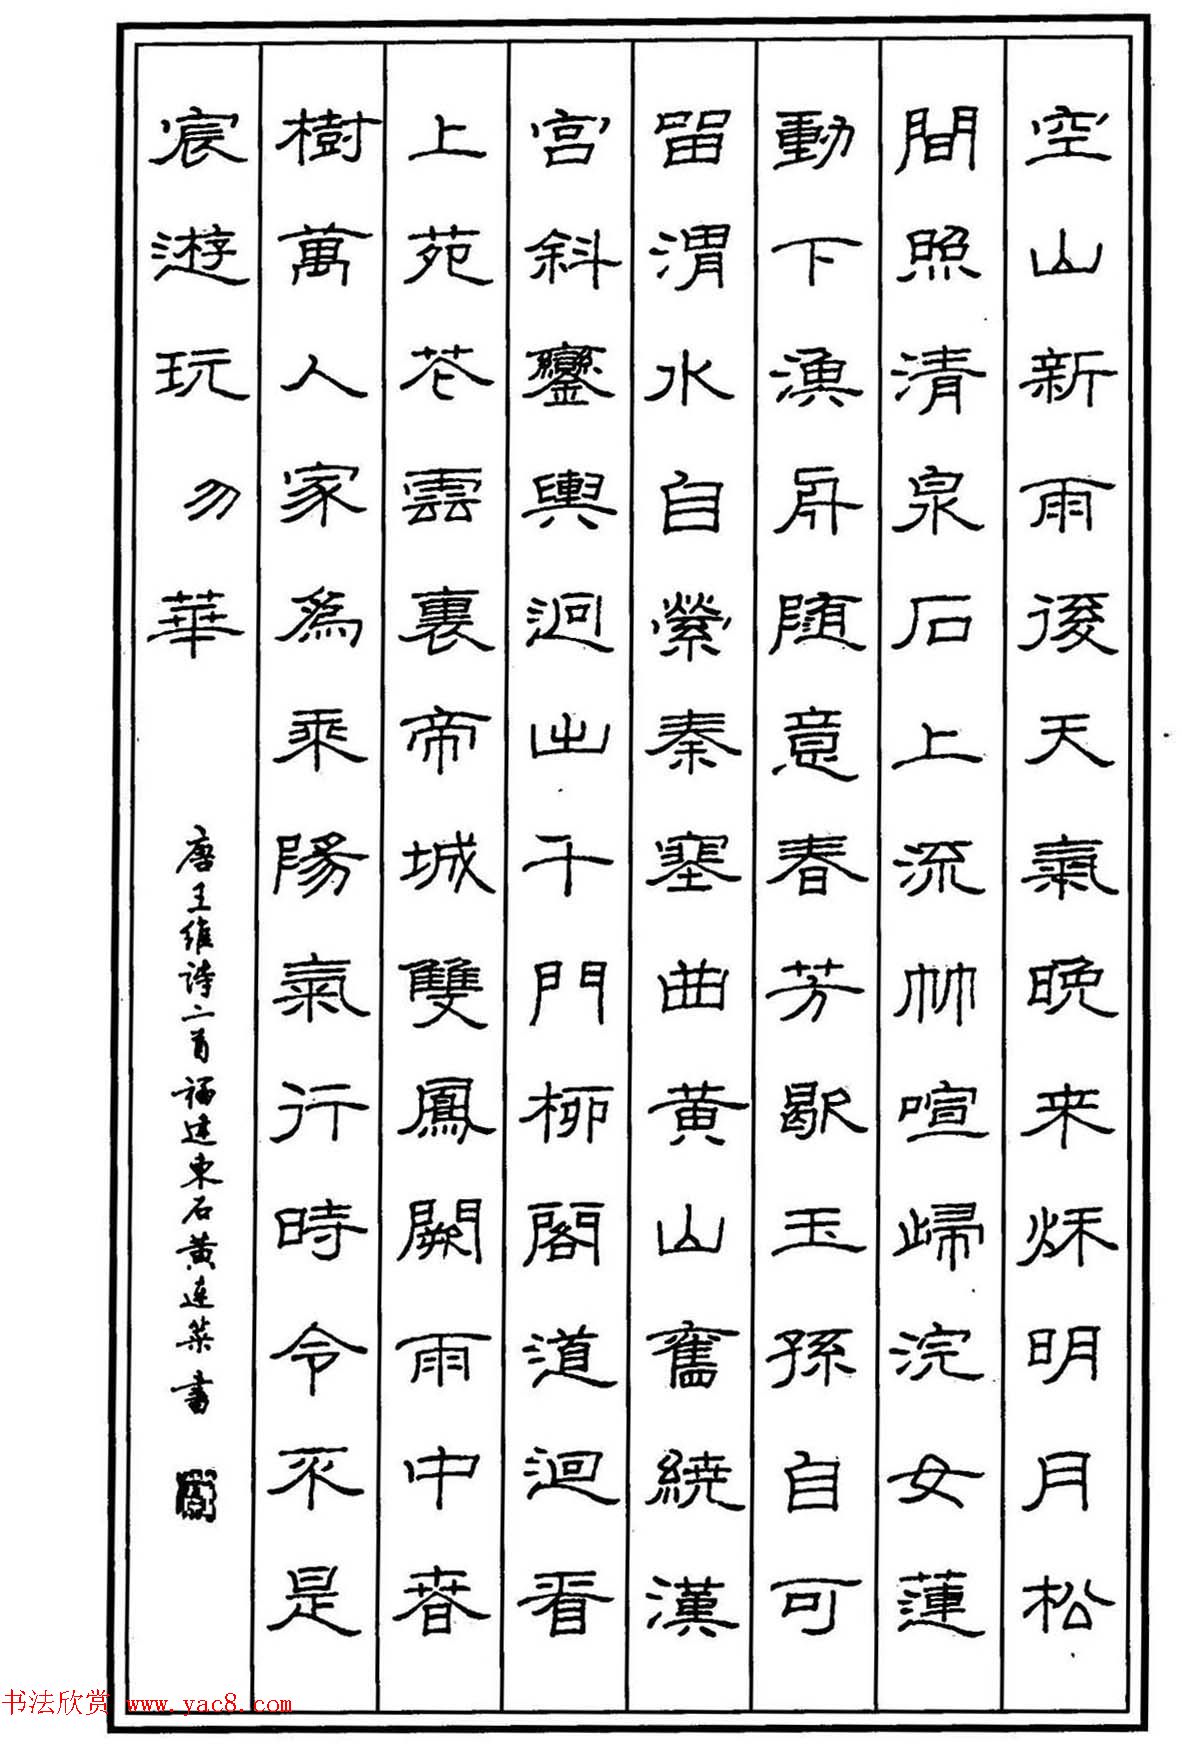 空山新雨後天氣晚来秌明月松
間照清泉石上流竹喧歸浣女蓮
動下漁舟随意春芳歇王孫自可
留渭水自縈秦塞曲黄山舊繞漢
宫斜鑾輿迥出千門栁閣道迴看
上苑花雲裏帝城雙鳳闕雨中春
樹萬人家為乘陽氣行時令不是
宸遊玩物華
唐王維詩二首福建東石黄連葉書
书法欣赏 www.yac8.com